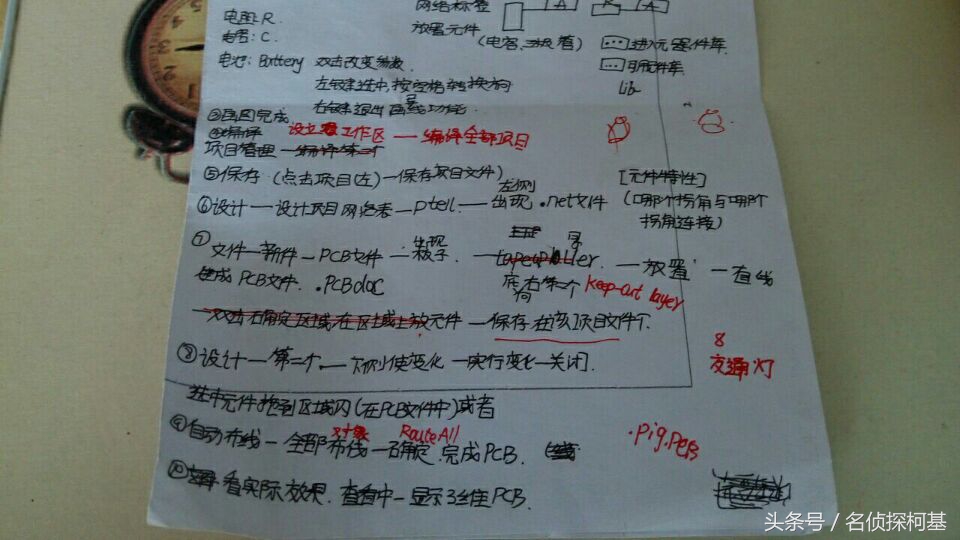 网络标签 A R A
电阻:R.
电容:C.
放置元件
(电容, 二极管)
进入元器件库
电池: Battery 双击改变参数.
可用元件库
左键选中,按空格转换方向
Lib
右键退出画线功能
③画图完成
④编译 设立工作区 — 编译全部项目
项目管理 — 编译第二个
⑤保存 (点击项目左)—保存项目文件)
[元件特性]
左侧
⑥设计 — 设计项目网络表 — ptell — 出现 .net文件
(哪个拐角与哪个
拐角连接)
⑦文件 — 新件 — PCB文件 — 出现板子. — 放置 — 直线
生成PCB文件. .PCBdoc
底 右第二个 keep-out layer
双击右确定区域,在区域上放元件 — 保存在该项目文件下.
8
⑧设计 — 第二个 — 下侧使变化 — 实行变化 — 关闭.
交通灯
选中元件拖到区域内(在PCB文件中)或者
⑨自动布线 — 全部对象布线 — Route All 确定.完成PCB.
.Pig.PCB
⑩看实际效果. 查看中 — 显示3维PCB.
头条号 / 名侦探柯基